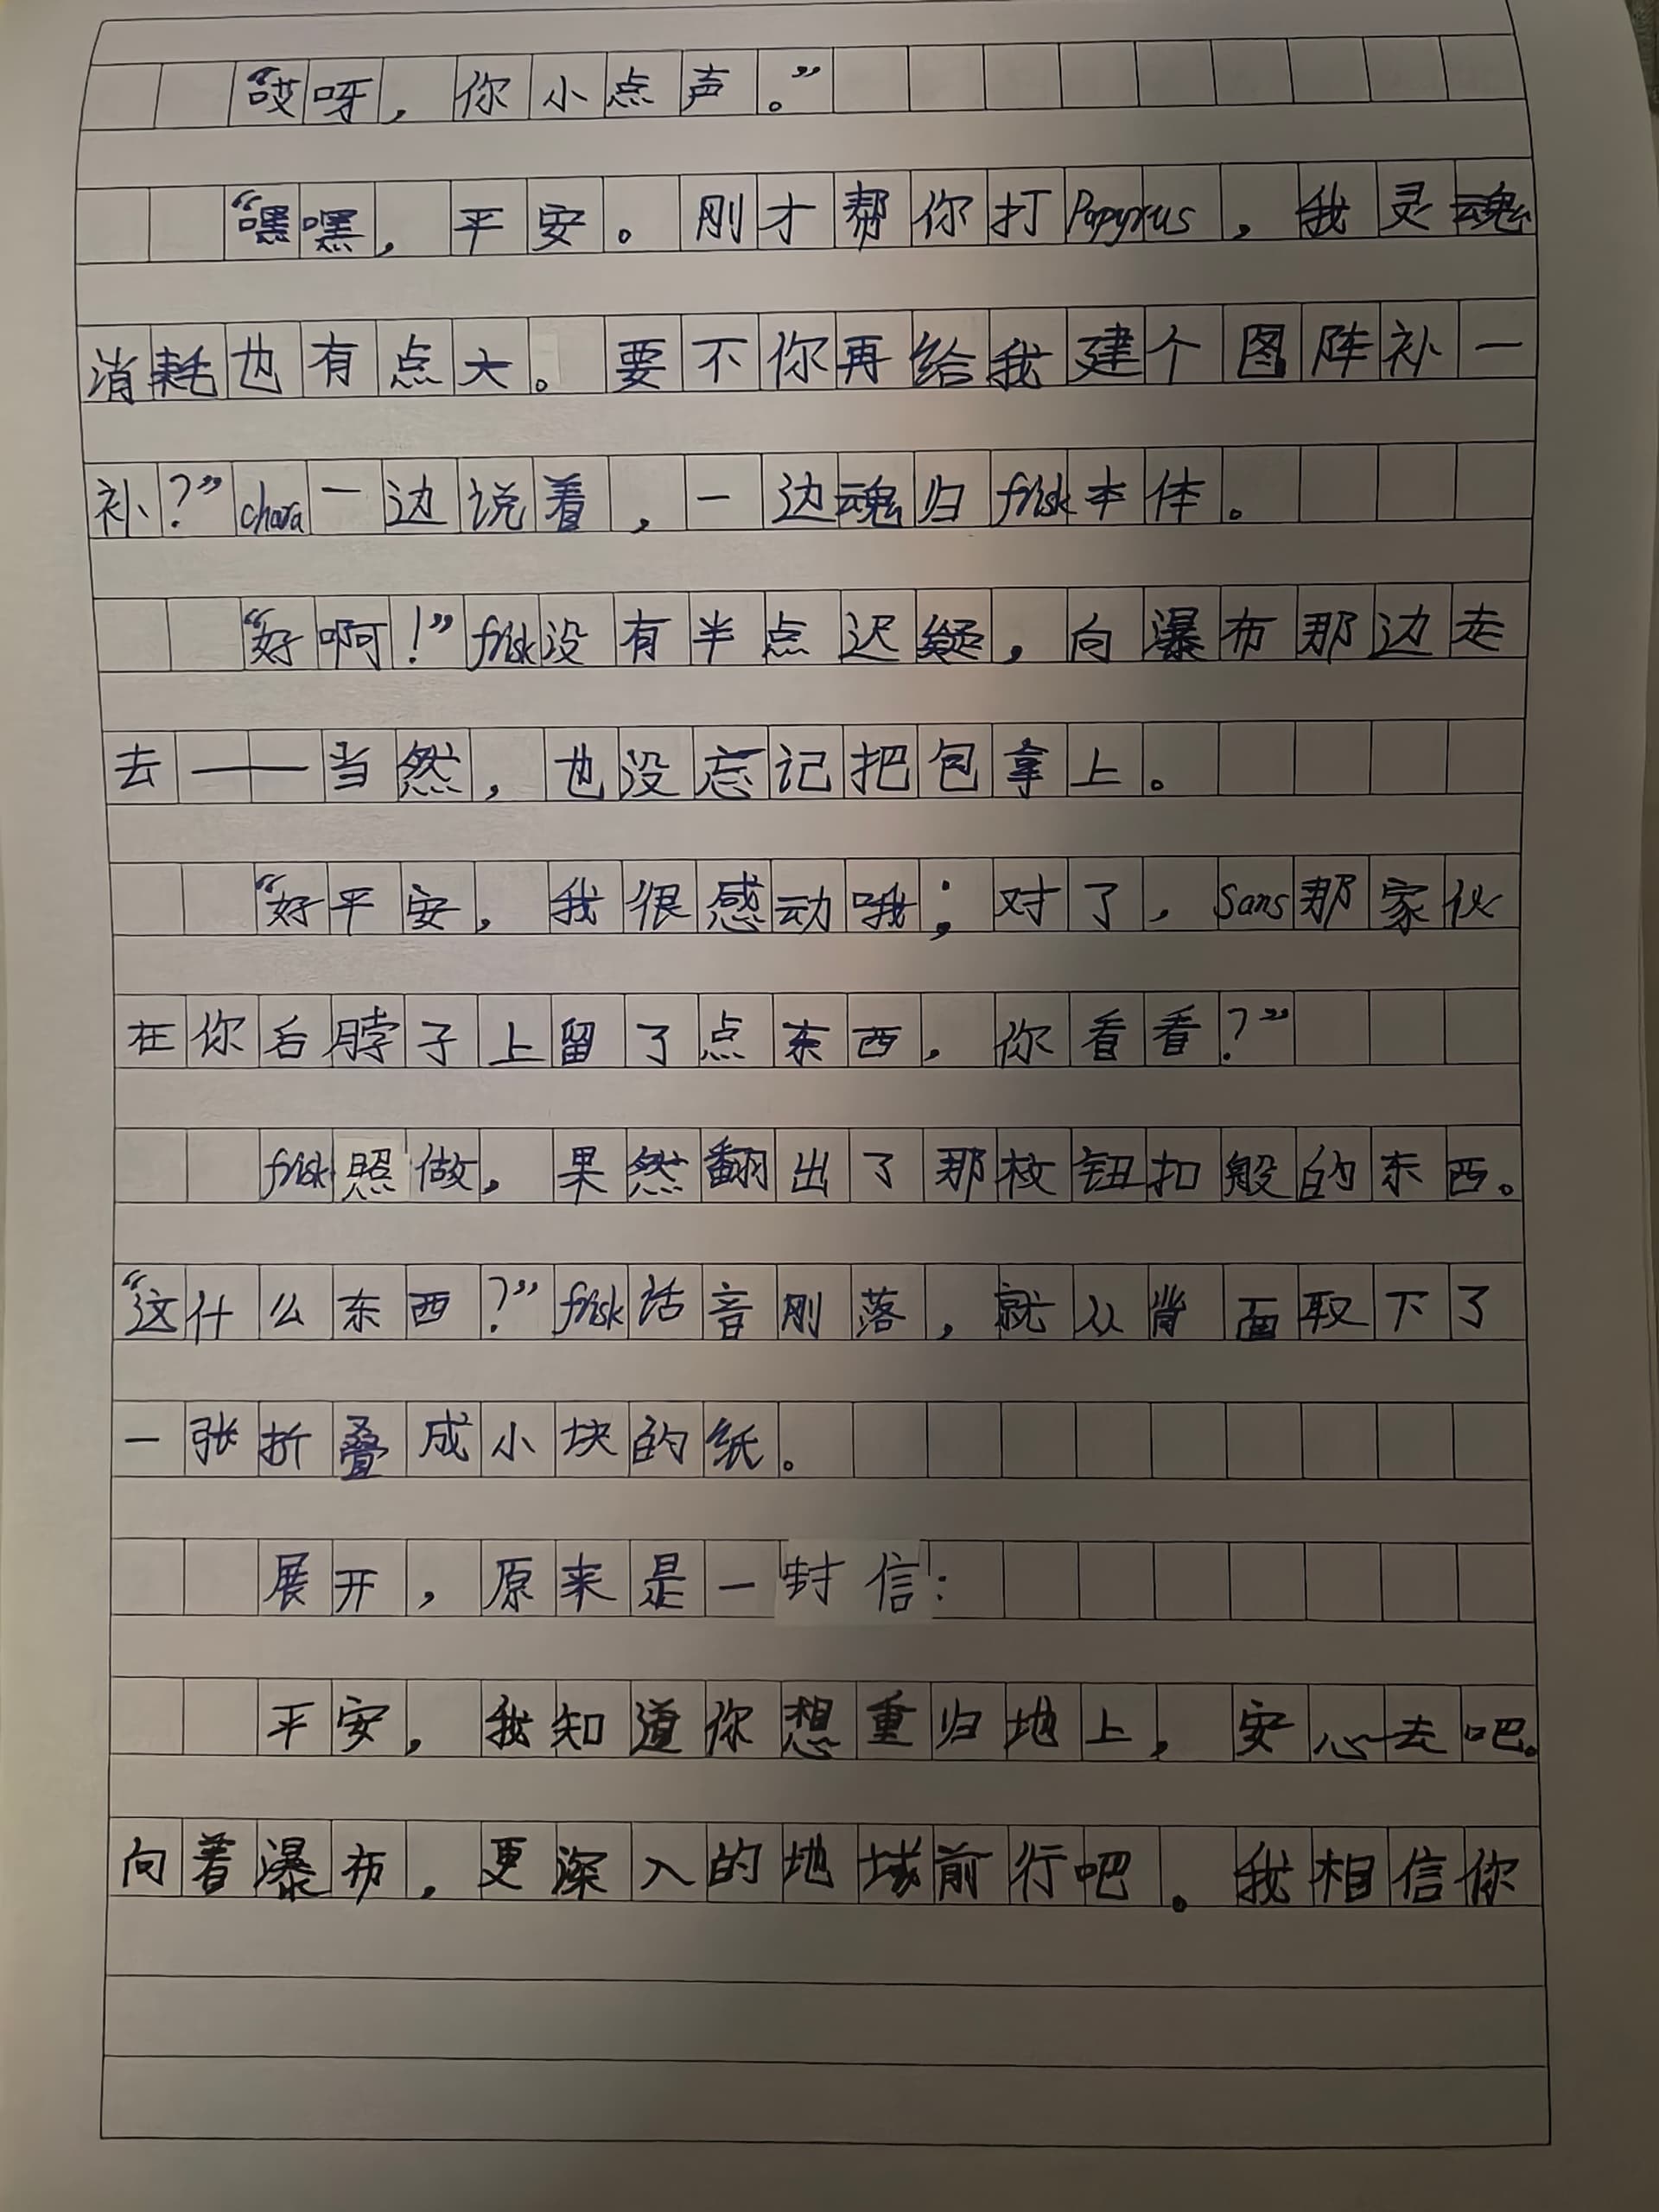 “哎呀，你小点声。”
“嘿嘿，平安。刚才帮你打Papyrus，我灵魂
消耗也有点大。要不你再给我建个图阵补一
补？”chara一边说着，一边魂归frisk本体。
“好啊！”frisk没有半点迟疑，向瀑布那边走
去——当然，也没忘记把包拿上。
“好平安，我很感动哦；对了，Sans那家伙
在你后脖子上留了点东西，你看看？”
frisk照做，果然翻出了那枚钮扣般的东西。
“这什么东西？”frisk话音刚落，就从背面取下了
一张折叠成小块的纸。
展开，原来是一封信：
平安，我知道你想重归地上，安心去吧。
向着瀑布，更深入的地域前行吧。我相信你